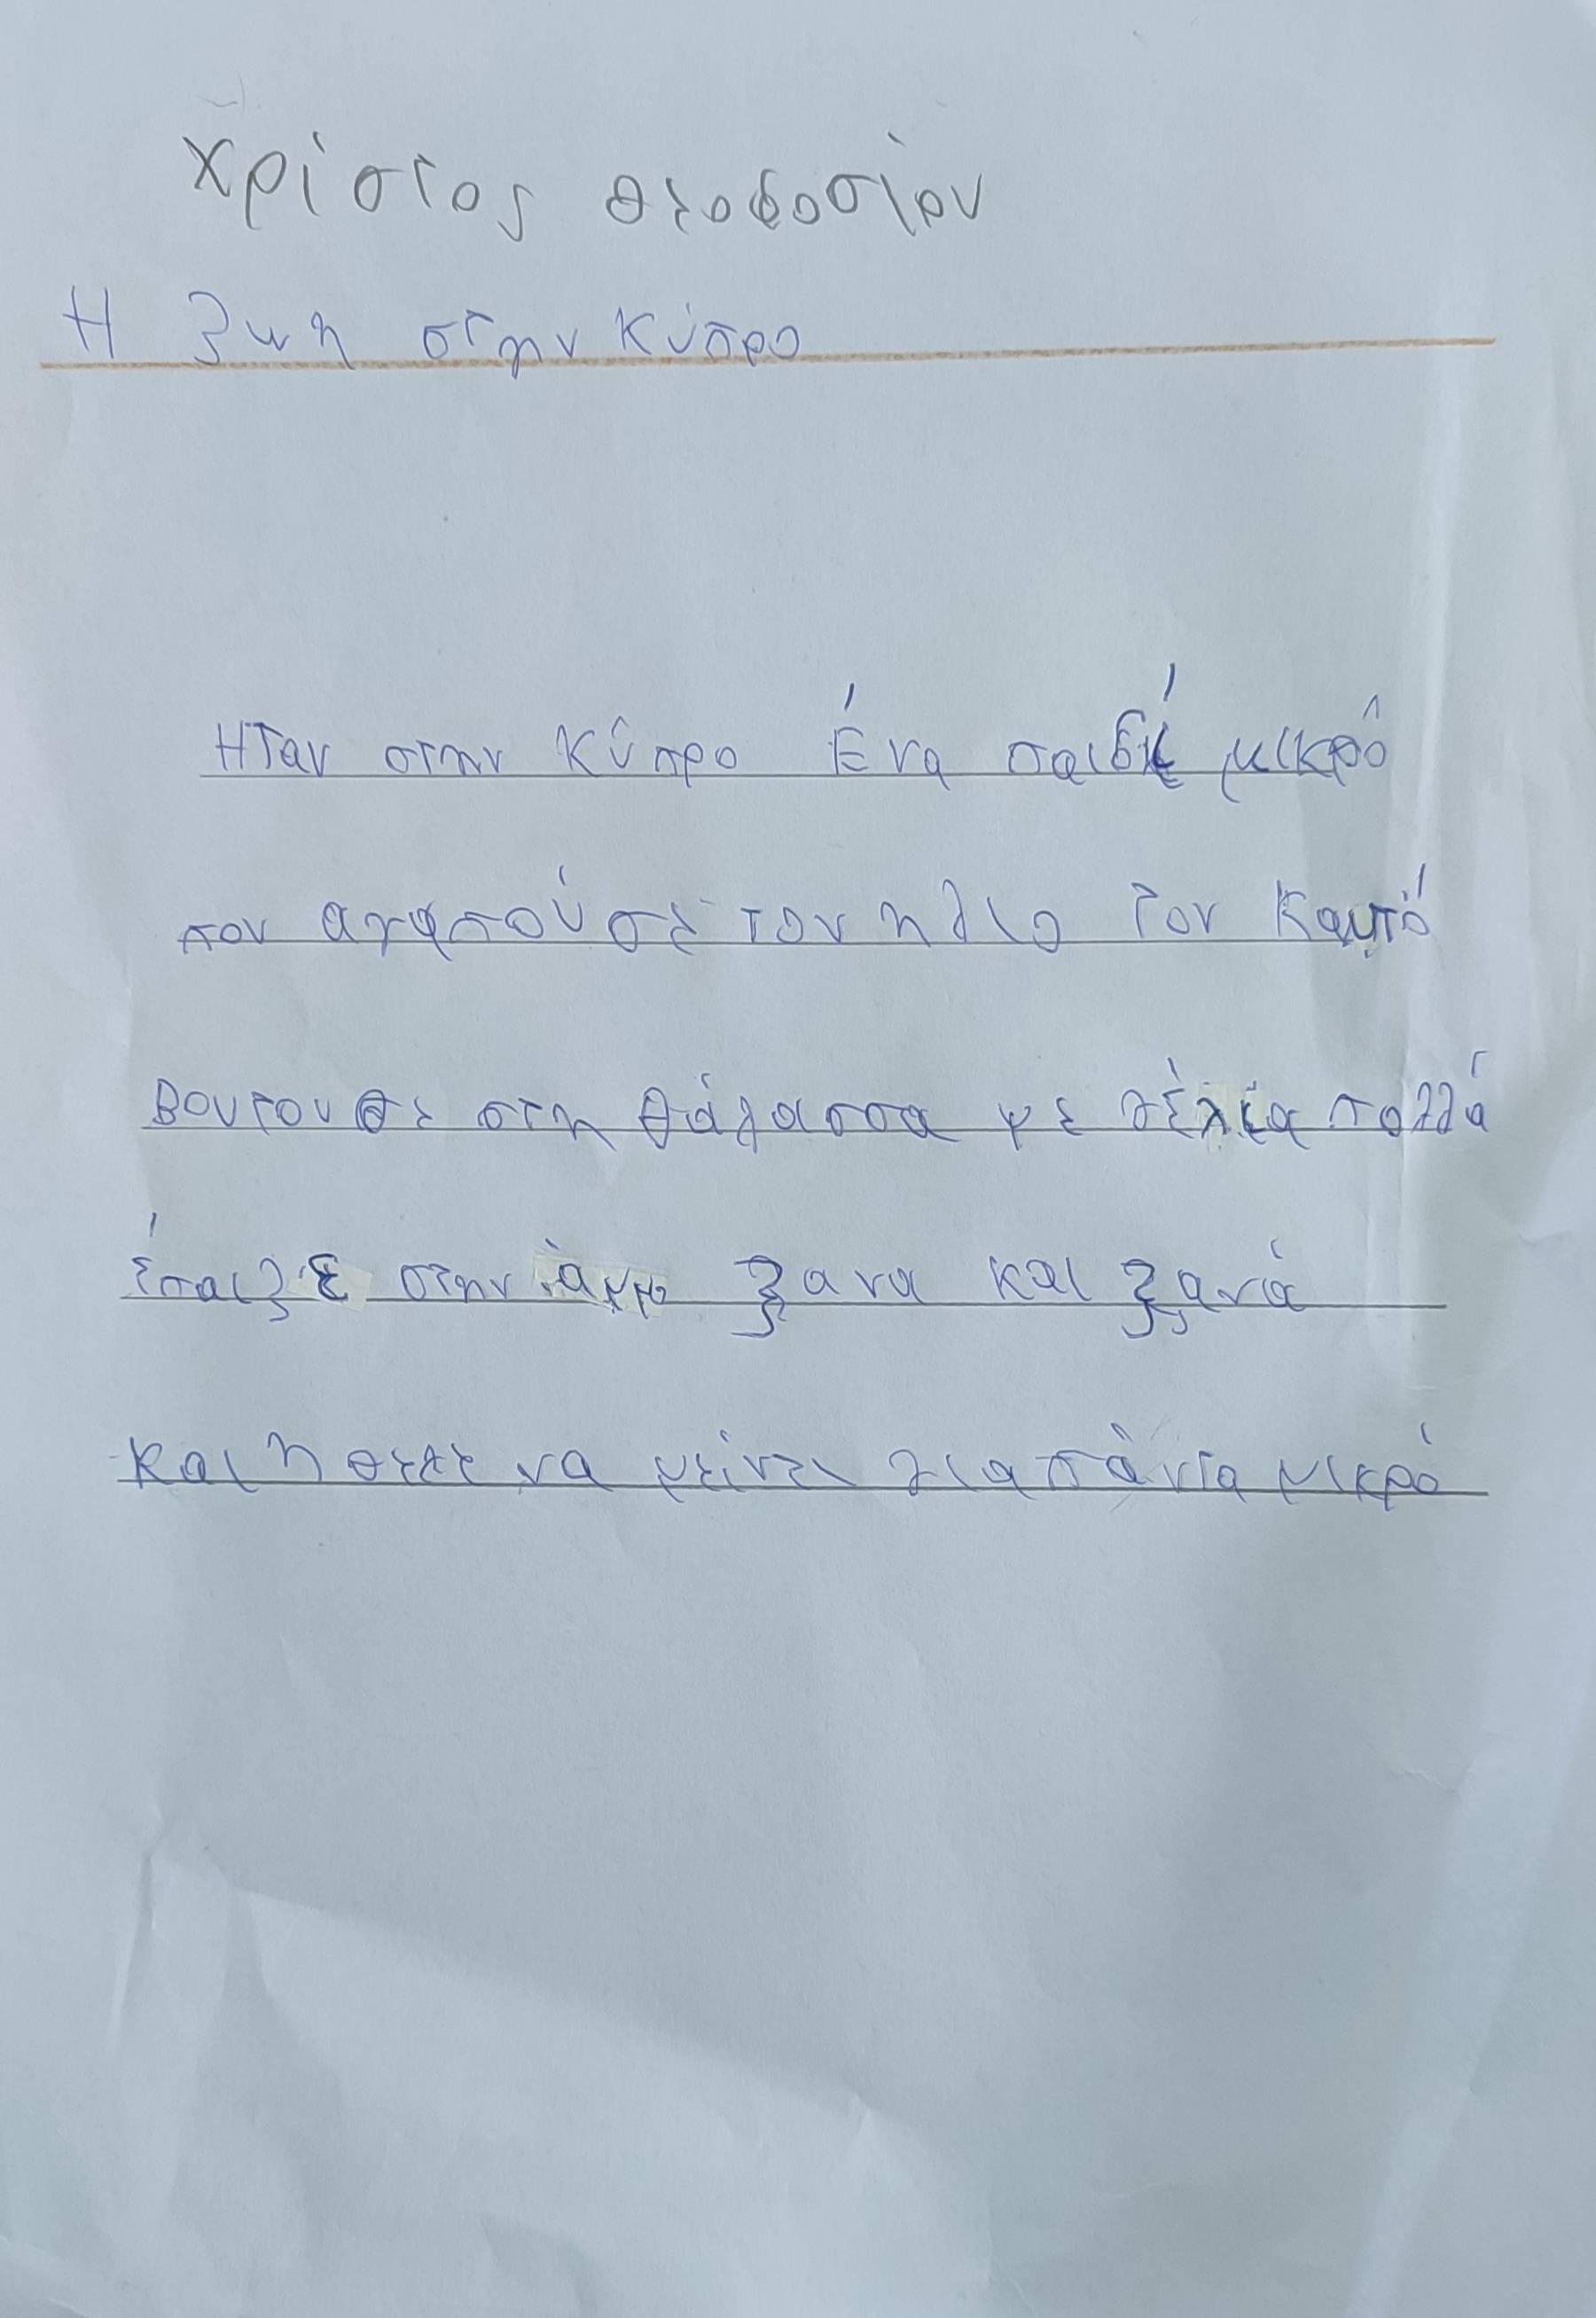 Χρίστος Θεοδοσίου
Η ζωη στην Κύπρο
Ηταν στην Κύπρο Ένα παιδί μικρό
που αγαπούσε τον ηλιο τον καυτό
Βουτουσε στη θάλασσα με γέλια πολλά
έπαιζε στην άμμο ξανα και ξανά
και ηθελε να μείνει για πάντα μικρό